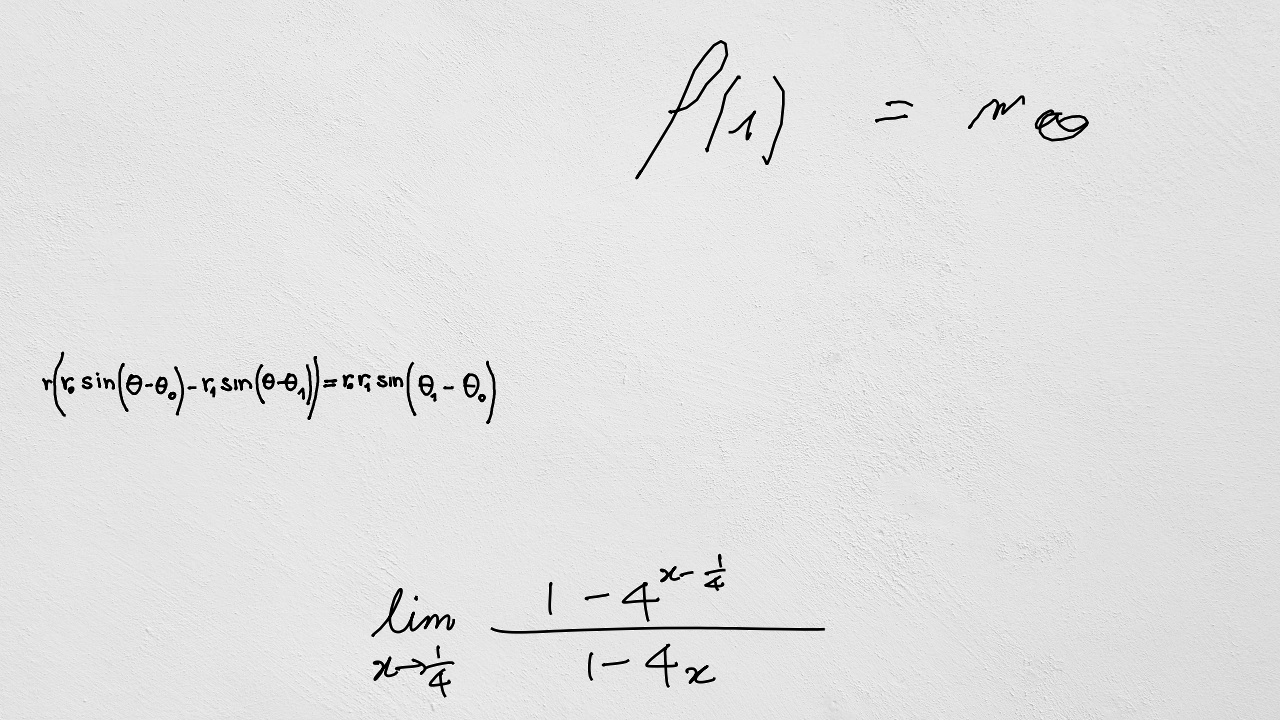 f(1) = m_∞
r(r_0 sin(θ-θ_0) - r_1 sin(θ-θ_1)) = r_0 r_1 sin(θ_1 - θ_0)
lim_{x→1/4} (1 - 4^{x - 1/4}) / (1 - 4x)